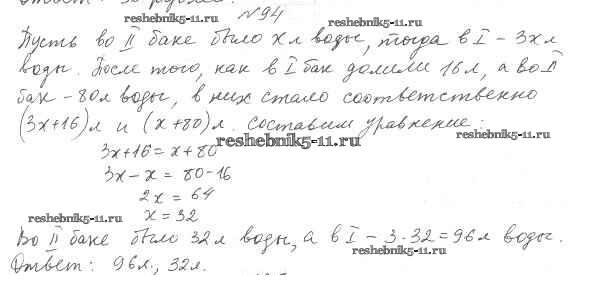 reshebnik5-11.ru
№94
reshebnik5-11.ru
Пусть во II баке было x л воды, тогда в I – 3x л
воды. После того, как в I бак долили 16 л, а во II
бак – 80 л воды, в них стало соответственно
(3x+16) л и (x+80) л. составим уравнение:
reshebnik5-11.ru
reshebnik5-11.ru
3x+16 = x+80
3x – x = 80-16
2x = 64
reshebnik5-11.ru
x = 32
Во II баке было 32 л воды, а в I – 3·32=96 л воды.
reshebnik5-11.ru
Ответ: 96 л., 32 л.